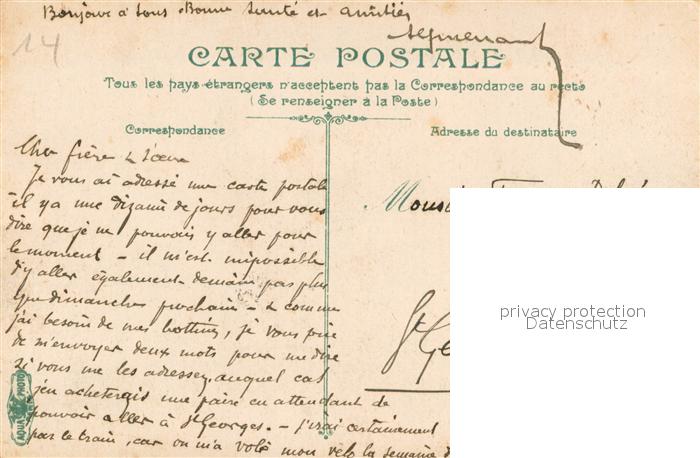 Bonjour à tous Bonne Santé et amitiés
14
CARTE POSTALE
Tous les pays étrangers n'acceptent pas la Correspondance au recto
(Se renseigner à la Poste)
Correspondance
Adresse du destinataire
Cher frère & Sœur
Je vous ai adressé une carte postale
il y a une dizaine de jours pour vous
dire que je ne pouvais y aller pour
le moment - il m'est impossible
d'y aller également demain pas plus
que dimanche prochain - & comme
j'ai besoin de mes bottines, je vous prie
de m'envoyer deux mots pour me dire
si vous me les adressez, auquel cas
j'en achèterais une paire en attendant de
pouvoir aller à St Georges. - J'irai certainement
par le train, car on m'a volé mon vélo la semaine d
Monsi
St Ge
AQUA PHOTO
privacy protection
Datenschutz